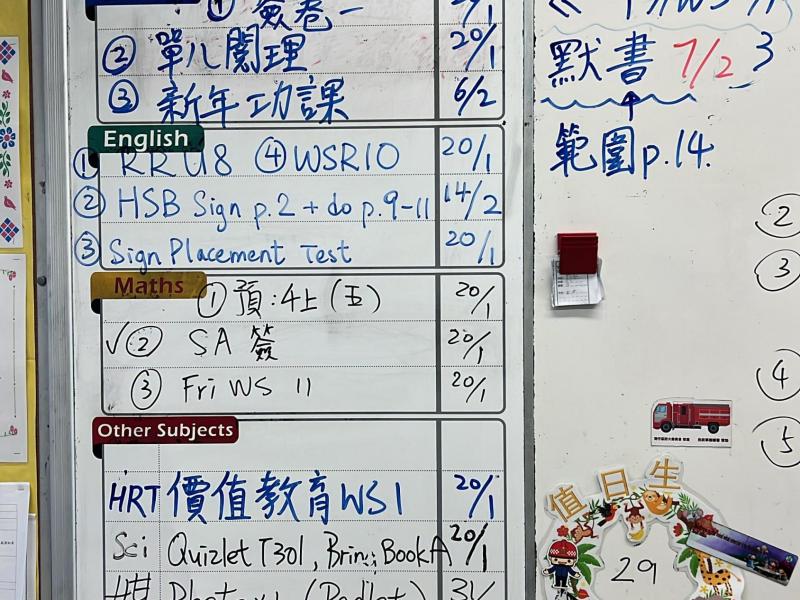 ① 簽卷一
② 單八閱理 20/1
③ 新年功課 6/2
English
① RR U8 ④ WSR10 20/1
② HSB Sign p.2 + do p.9-11 14/2
③ Sign Placement Test 20/1
Maths
① 預:4上(五) 20/1
✓② SA 簽 20/1
③ Fri WS 11 20/1
Other Subjects
HRT 價值教育WS1 20/1
Sci Quizlet T301, Bring Book A 20/1
默書 7/2 3
範圍p.14.
②
③
④
⑤
值日生
29